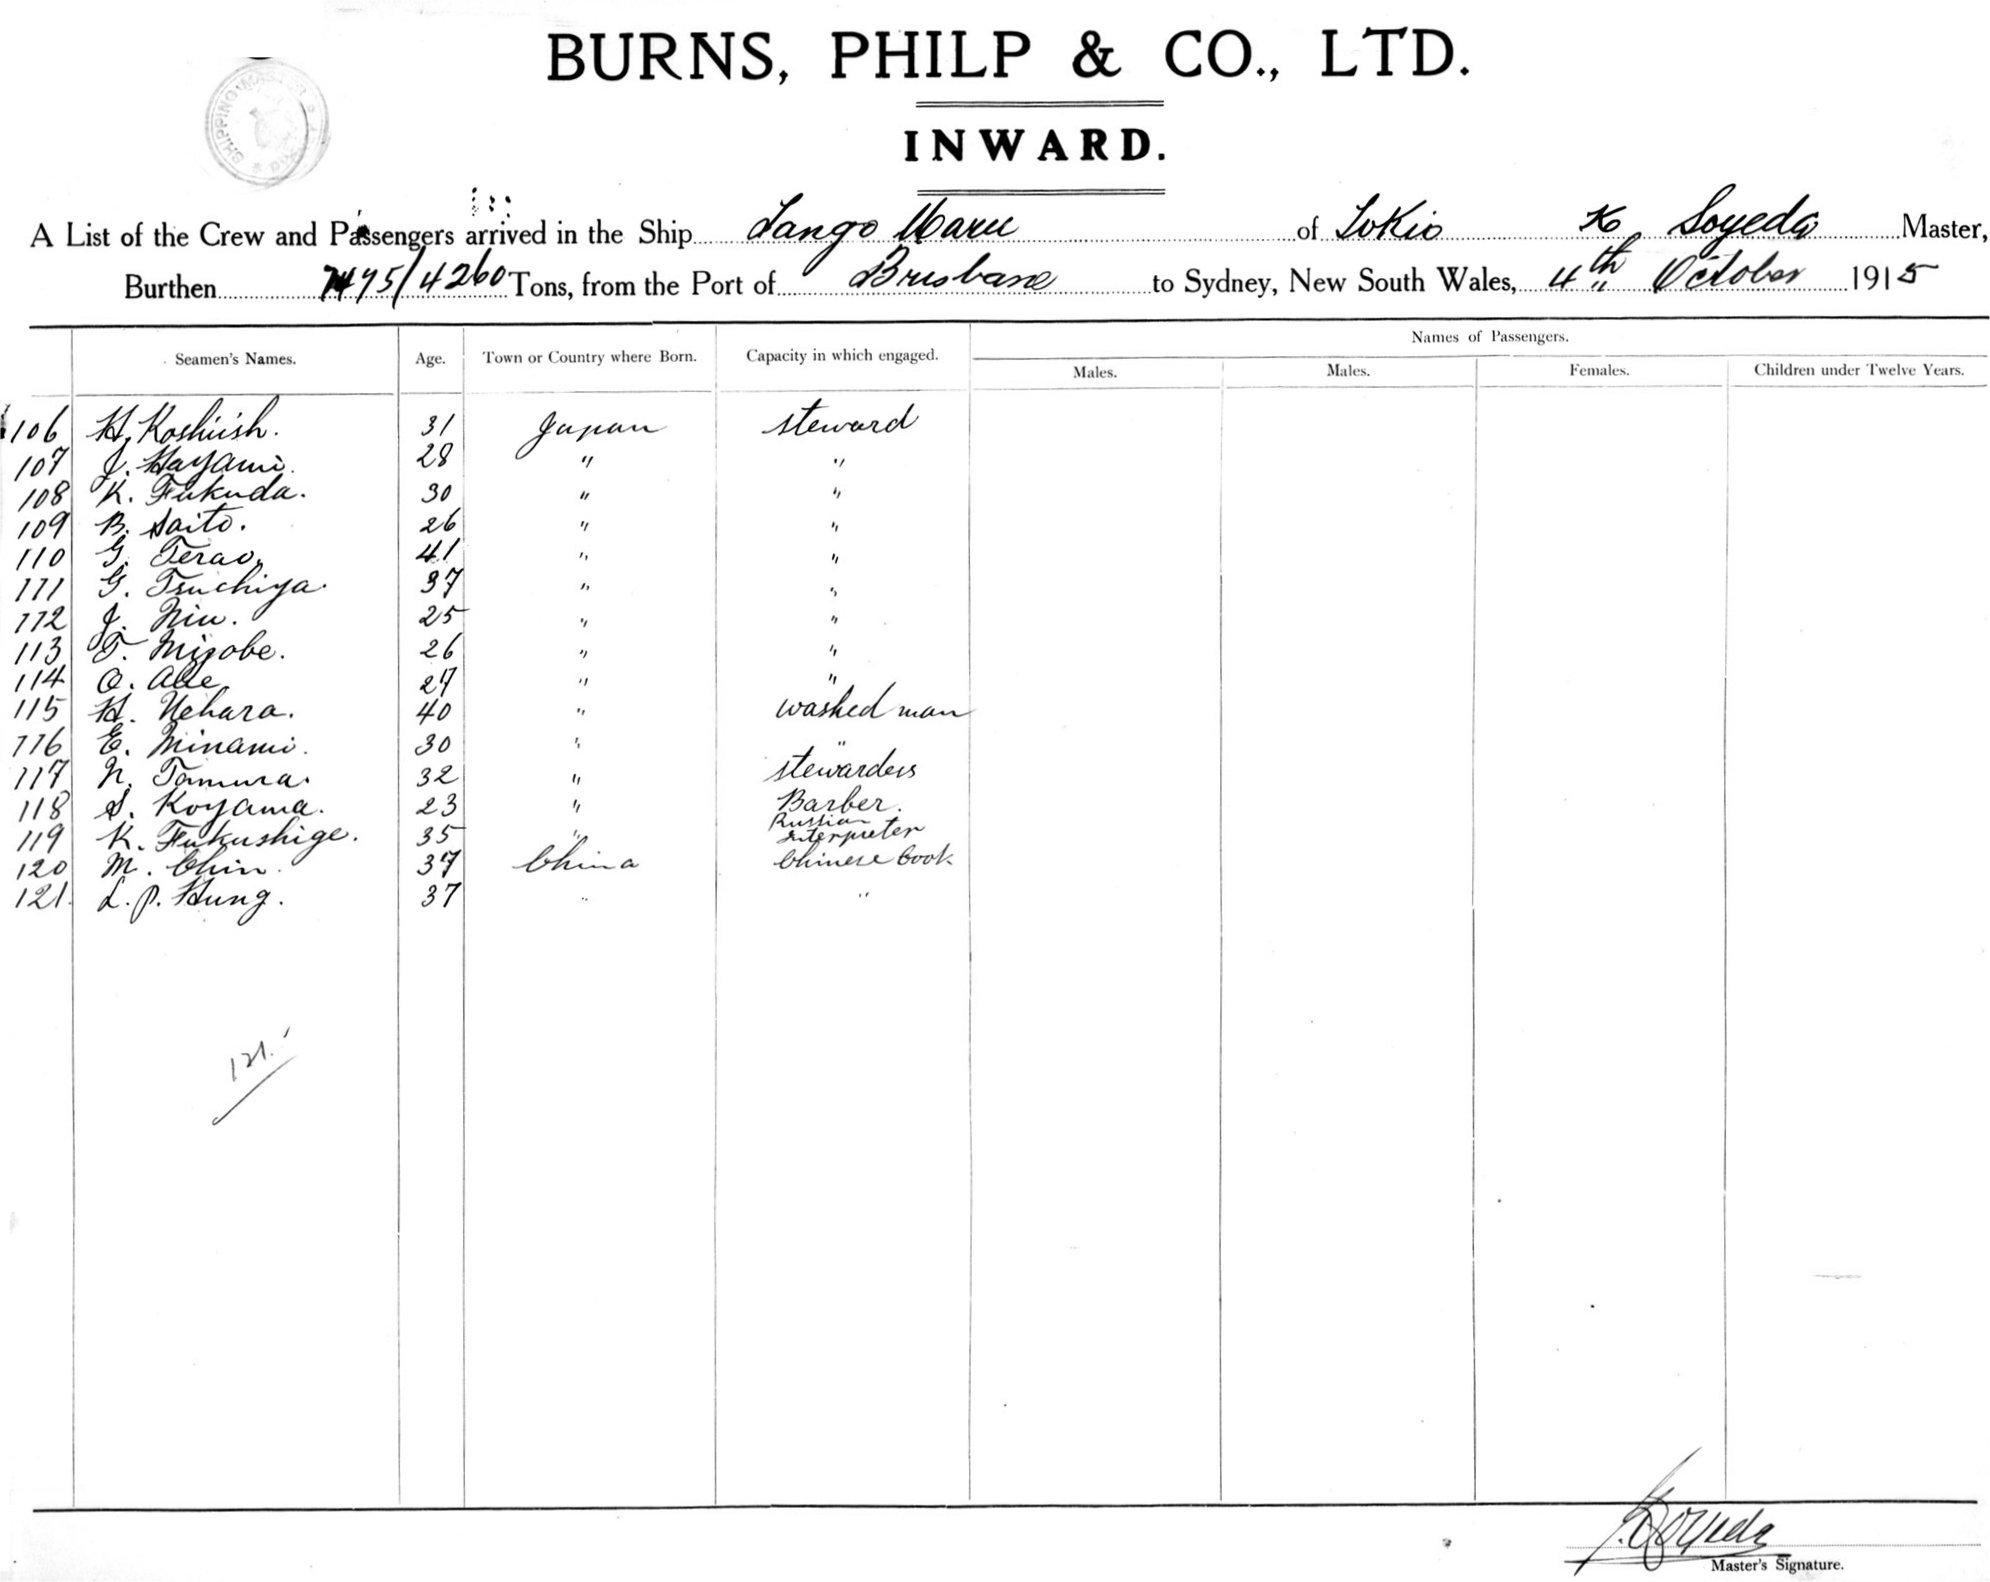 BURNS, PHILP & CO., LTD.
INWARD.
SHIPPING MASTER
A List of the Crew and Passengers arrived in the Ship Tango Maru of Tokio K Soyeda Master,
Burthen 7475/4260 Tons, from the Port of Brisbane to Sydney, New South Wales, 4th October 1915
Names of Passengers.
Seamen's Names. Age. Town or Country where Born. Capacity in which engaged. Males. Males. Females. Children under Twelve Years.
106 H. Koshiish. 31 Japan steward
107 J. Hayami. 28 " "
108 K. Fukuda. 30 " "
109 B. Saito. 26 " "
110 G. Terao. 41 " "
111 G. Tsuchiya. 37 " "
112 J. Niu. 25 " "
113 T. Mizobe. 26 " "
114 O. Abe 27 " "
115 H. Uehara. 40 " washed man
116 E. Minami. 30 " "
117 N. Tamura. 32 " stewardess
118 S. Koyama. 23 " Barber.
119 K. Fukushige. 35 " Russian Interpreter
120 M. Chin. 37 China Chinese Cook
121. L. P. Hung. 37 " "
121.
Soyeda
Master's Signature.